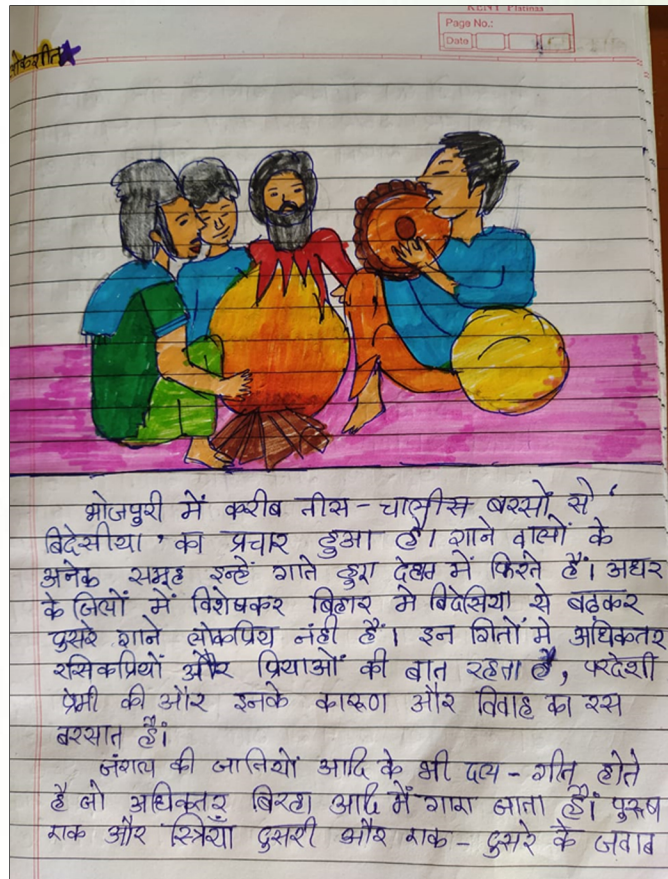 KENT Platinaa
Page No.:
Date
लोकगीत
भोजपुरी में करीब तीस - चालीस बरसों से '
बिदेसीया ' का प्रचार हुआ है। गाने वालों के
अनेक समूह इन्हें गाते हुए देहात में फिरते हैं। अधर
के जिलों में विशेषकर बिहार मे बिदेसिया से बढ़कर
दुसरे गाने लोकप्रिय नंही हैं। इन गितों मे अधिकतर
रसिकप्रियों और प्रियाओं की बात रहता है, परदेशी
प्रेमी की और इनके कारूण और विवाह का रस
बरसात है।
जंगल की जातियों आदि के भी दल - गीत होते
है जो अधिकतर बिरहा आदि में गाया जाता हैं। पुरूष
एक और स्त्रियाँ दुसरी और एक - दुसरे के जवाब